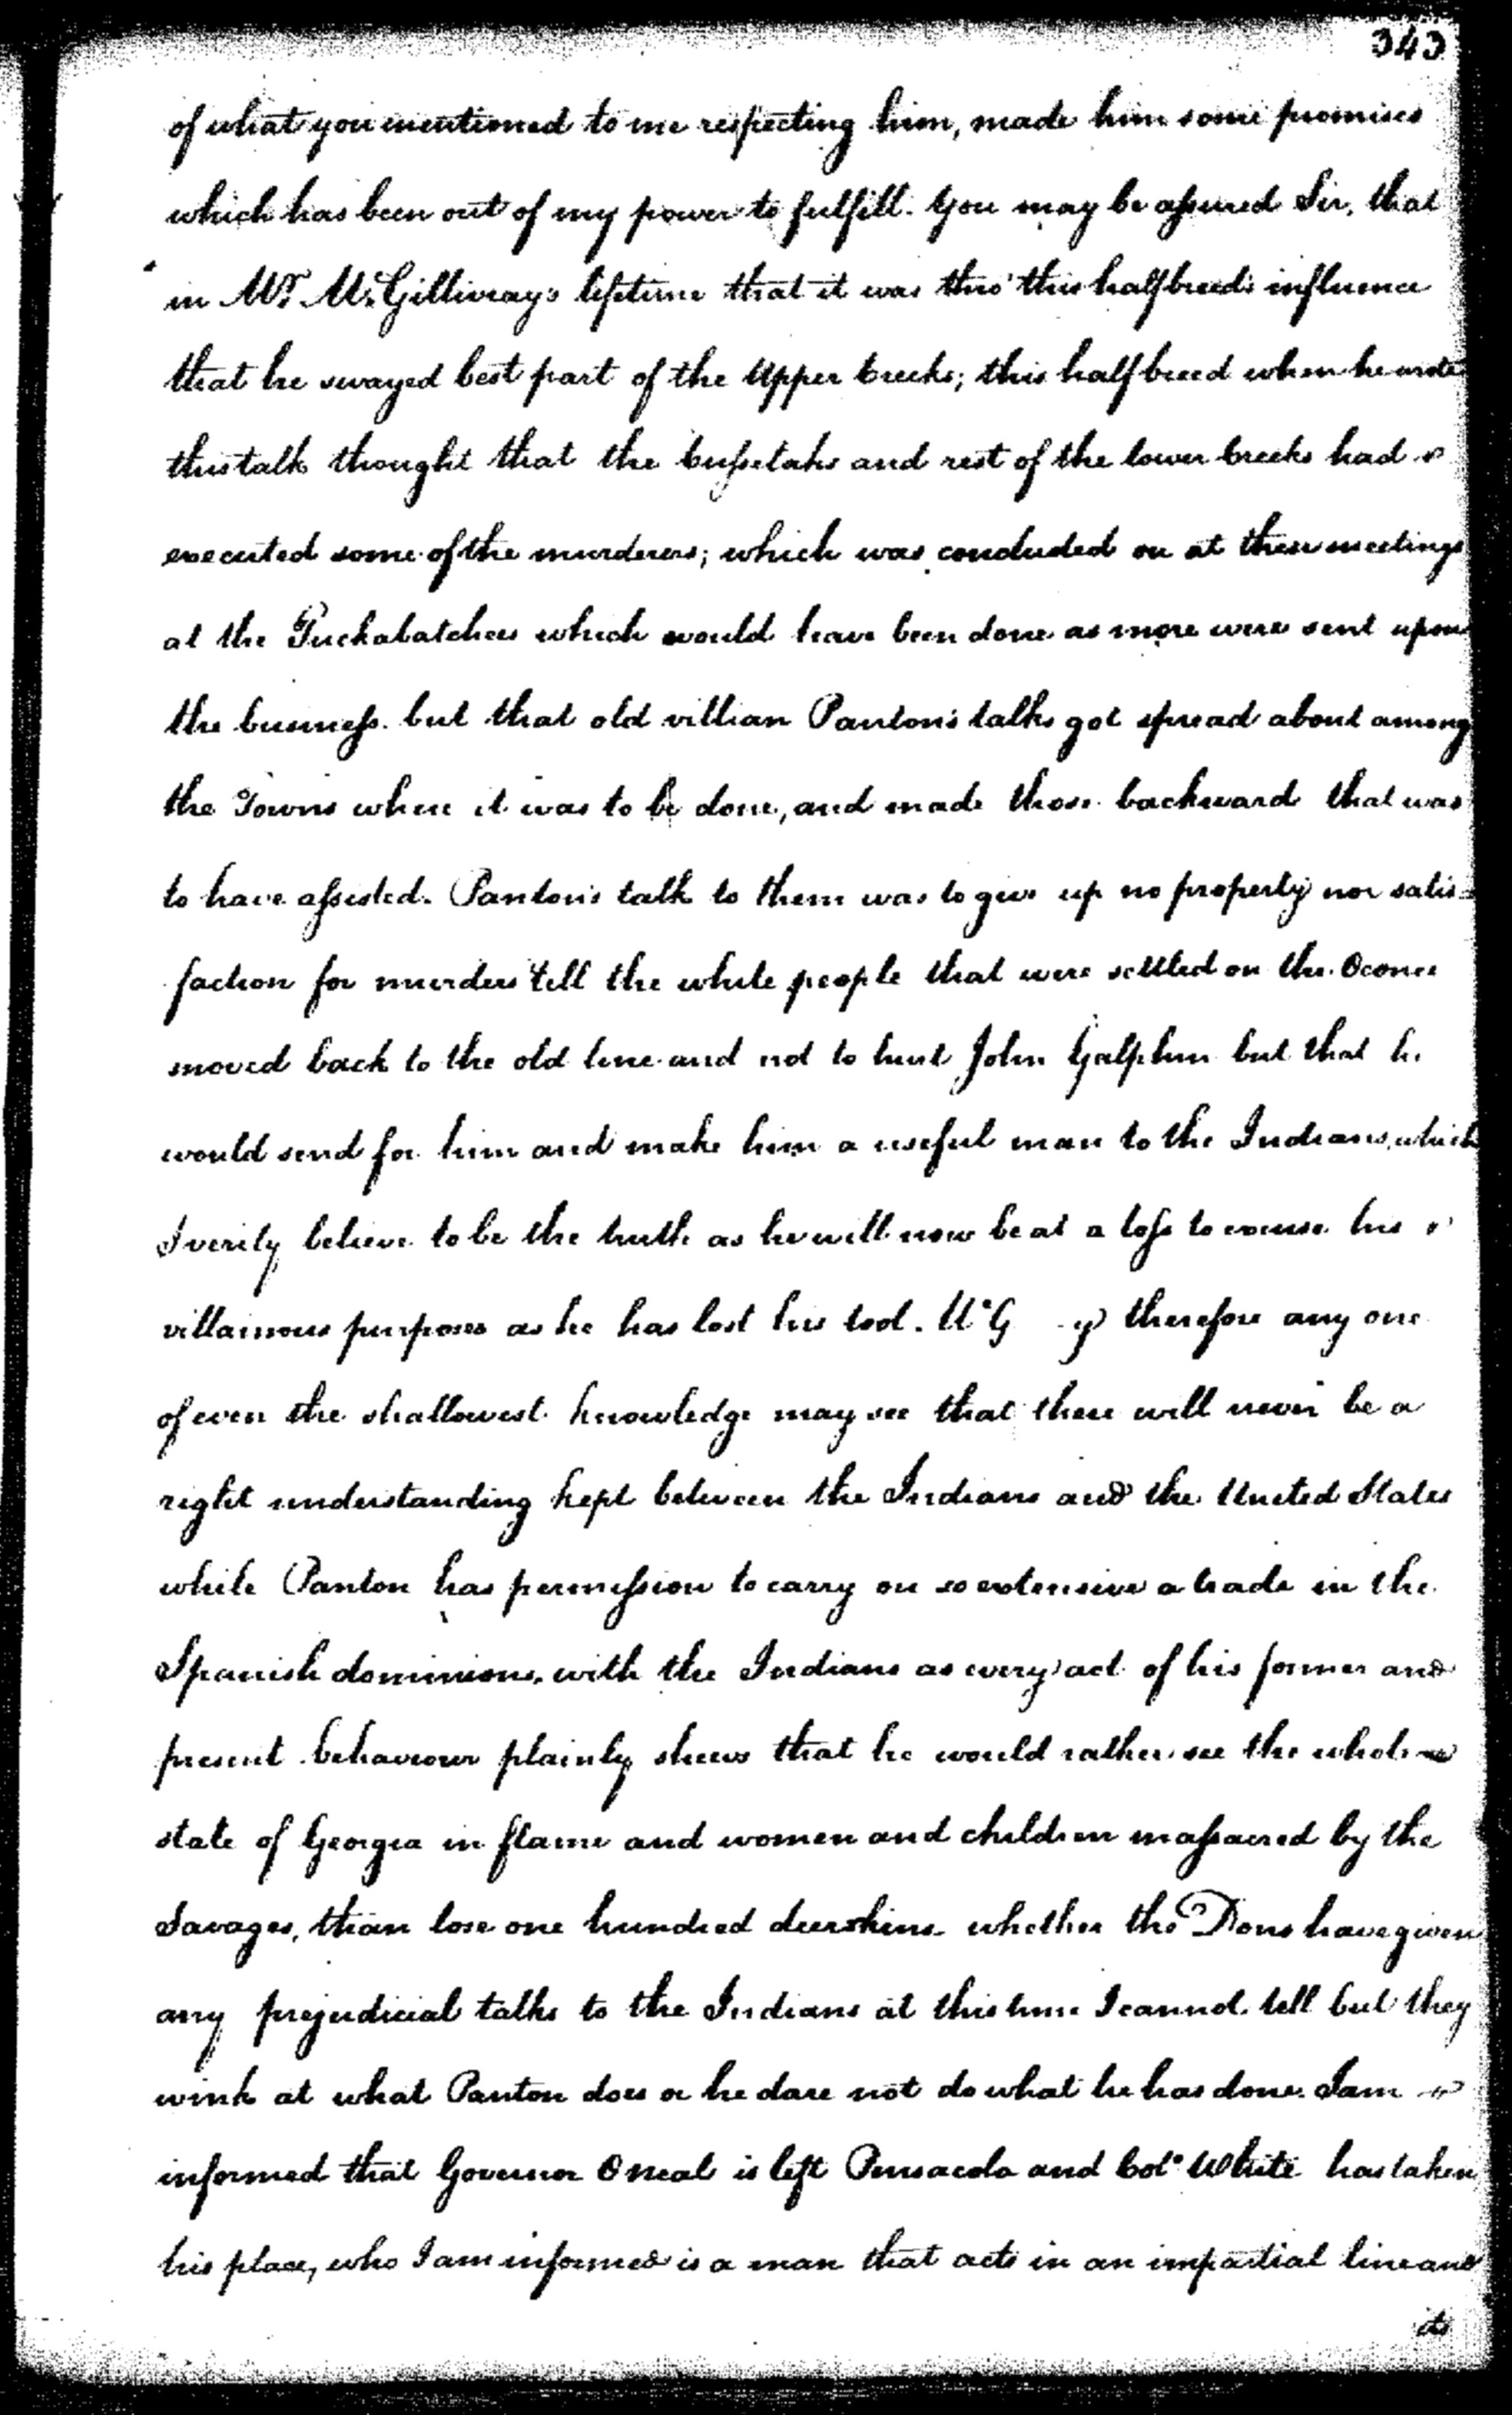 343
of what you mentioned to me respecting him, made him some promises
which has been out of my power to fulfill. You may be assured Sir, that
in Mr. McGillivray's lifetime that it was thro' this halfbreed's influence
that he swayed best part of the Upper Creeks; this halfbreed when he wrote
this talk thought that the Cussetahs and rest of the lower Creeks had
executed some of the murderers; which was concluded on at their meetings
at the Tuckabatchees which would have been done as more were sent upon
the business. but that old villian Panton's talks got spread about among
the Towns where it was to be done, and made those backward that was
to have assisted. Panton's talk to them was to give up no property nor satis-
faction for murders till the white people that were settled on the Oconee
moved back to the old line and not to hurt John Galphin but that he
would send for him and make him a useful man to the Indians, which
I verily believe to be the truth as he will now be at a loss to excuse his
villainous purposes as he has lost his tool. McG y therefore any one
of even the shallowest knowledge may see that there will never be a
right understanding kept between the Indians and the United States
while Panton has permission to carry on so extensive a trade in the
Spanish dominions, with the Indians as every act of his former and
present behaviour plainly shews that he would rather see the whole
state of Georgia in flame and women and children massacred by the
Savages, than lose one hundred deerskins. whether the Dons have given
any prejudicial talks to the Indians at this time I cannot tell but they
wink at what Panton does or he dare not do what he has done. I am
informed that Governor Oneal is left Pensacola and Colo. White has taken
his place, who I am informed is a man that acts in an impartial line and
its